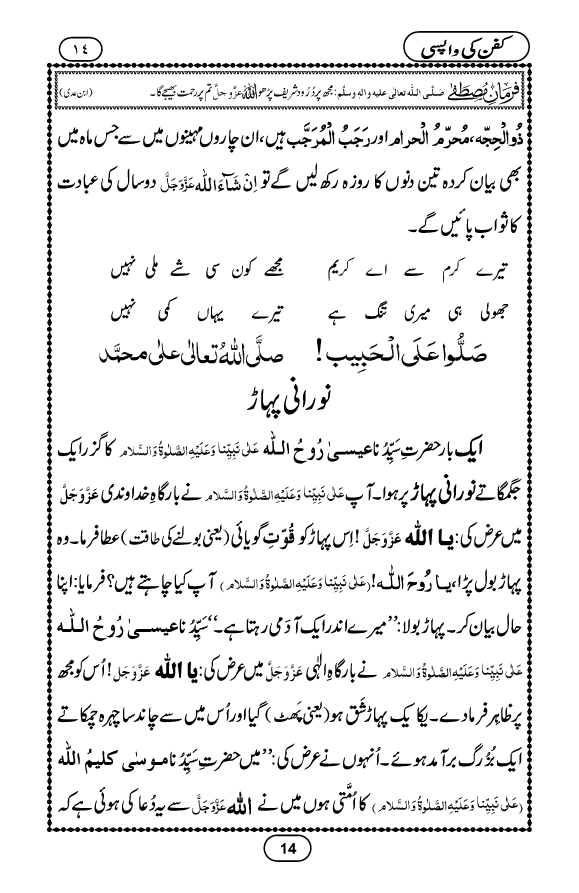 کفن کی واپسی
١٤
فرمانِ مصطفےٰ صلّی اللہ تعالیٰ علیہ والہٖ وسلّم: مجھ پر دُرُود شریف پڑھو اللہ عزّوجلّ تم پر رحمت بھیجے گا۔ (ابن عدی)
ذُوالْحِجّہ، مُحرّمُ الْحرام اور رَجَبُ الْمُرَجَّب ہیں، ان چاروں مہینوں میں سے جس ماہ میں
بھی بیان کردہ تین دنوں کا روزہ رکھ لیں گے تو اِنْ شَآءَ اللہ عَزَّوَجَلَّ دو سال کی عبادت
کا ثواب پائیں گے۔
تیرے کرم سے اے کریم مجھے کون سی شے ملی نہیں
جھولی ہی میری تنگ ہے تیرے یہاں کمی نہیں
صَلُّوا عَلَی الْحَبِیب! صلَّی اللہُ تعالیٰ علیٰ محمَّد
نورانی پہاڑ
ایک بار حضرتِ سیِّدُنا عیسیٰ رُوحُ اللہ عَلٰی نَبِیِّنا وَعَلَیْہِ الصَّلٰوۃُ وَالسَّلام کا گزر ایک
جگمگاتے نورانی پہاڑ پر ہوا۔ آپ عَلٰی نَبِیِّنا وَعَلَیْہِ الصَّلٰوۃُ وَالسَّلام نے بارگاہِ خداوندی عَزَّوَجَلَّ
میں عرض کی: یا اللہ عَزَّوَجَلَّ! اِس پہاڑ کو قُوّتِ گویائی (یعنی بولنے کی طاقت) عطا فرما۔ وہ
پہاڑ بول پڑا، یا رُوحَ اللہ! (عَلٰی نَبِیِّنا وَعَلَیْہِ الصَّلٰوۃُ وَالسَّلام) آپ کیا چاہتے ہیں؟ فرمایا: اپنا
حال بیان کر۔ پہاڑ بولا: ”میرے اندر ایک آدَمی رہتا ہے۔“ سیِّدُنا عیسیٰ رُوحُ اللہ
عَلٰی نَبِیِّنا وَعَلَیْہِ الصَّلٰوۃُ وَالسَّلام نے بارگاہِ الٰہی عَزَّوَجَلَّ میں عرض کی: یا اللہ عَزَّوَجَلَّ! اُس کو مجھ
پر ظاہر فرما دے۔ یکایک پہاڑ شَق ہو (یعنی پھٹ) گیا اور اُس میں سے چاند سا چہرہ چمکاتے
ایک بُزُرگ برآمد ہوئے۔ اُنہوں نے عرض کی: ”میں حضرتِ سیِّدُنا موسیٰ کلیمُ اللہ
(عَلٰی نَبِیِّنا وَعَلَیْہِ الصَّلٰوۃُ وَالسَّلام) کا اُمَّتی ہوں میں نے اللہ عَزَّوَجَلَّ سے یہ دُعا کی ہوئی ہے کہ
14